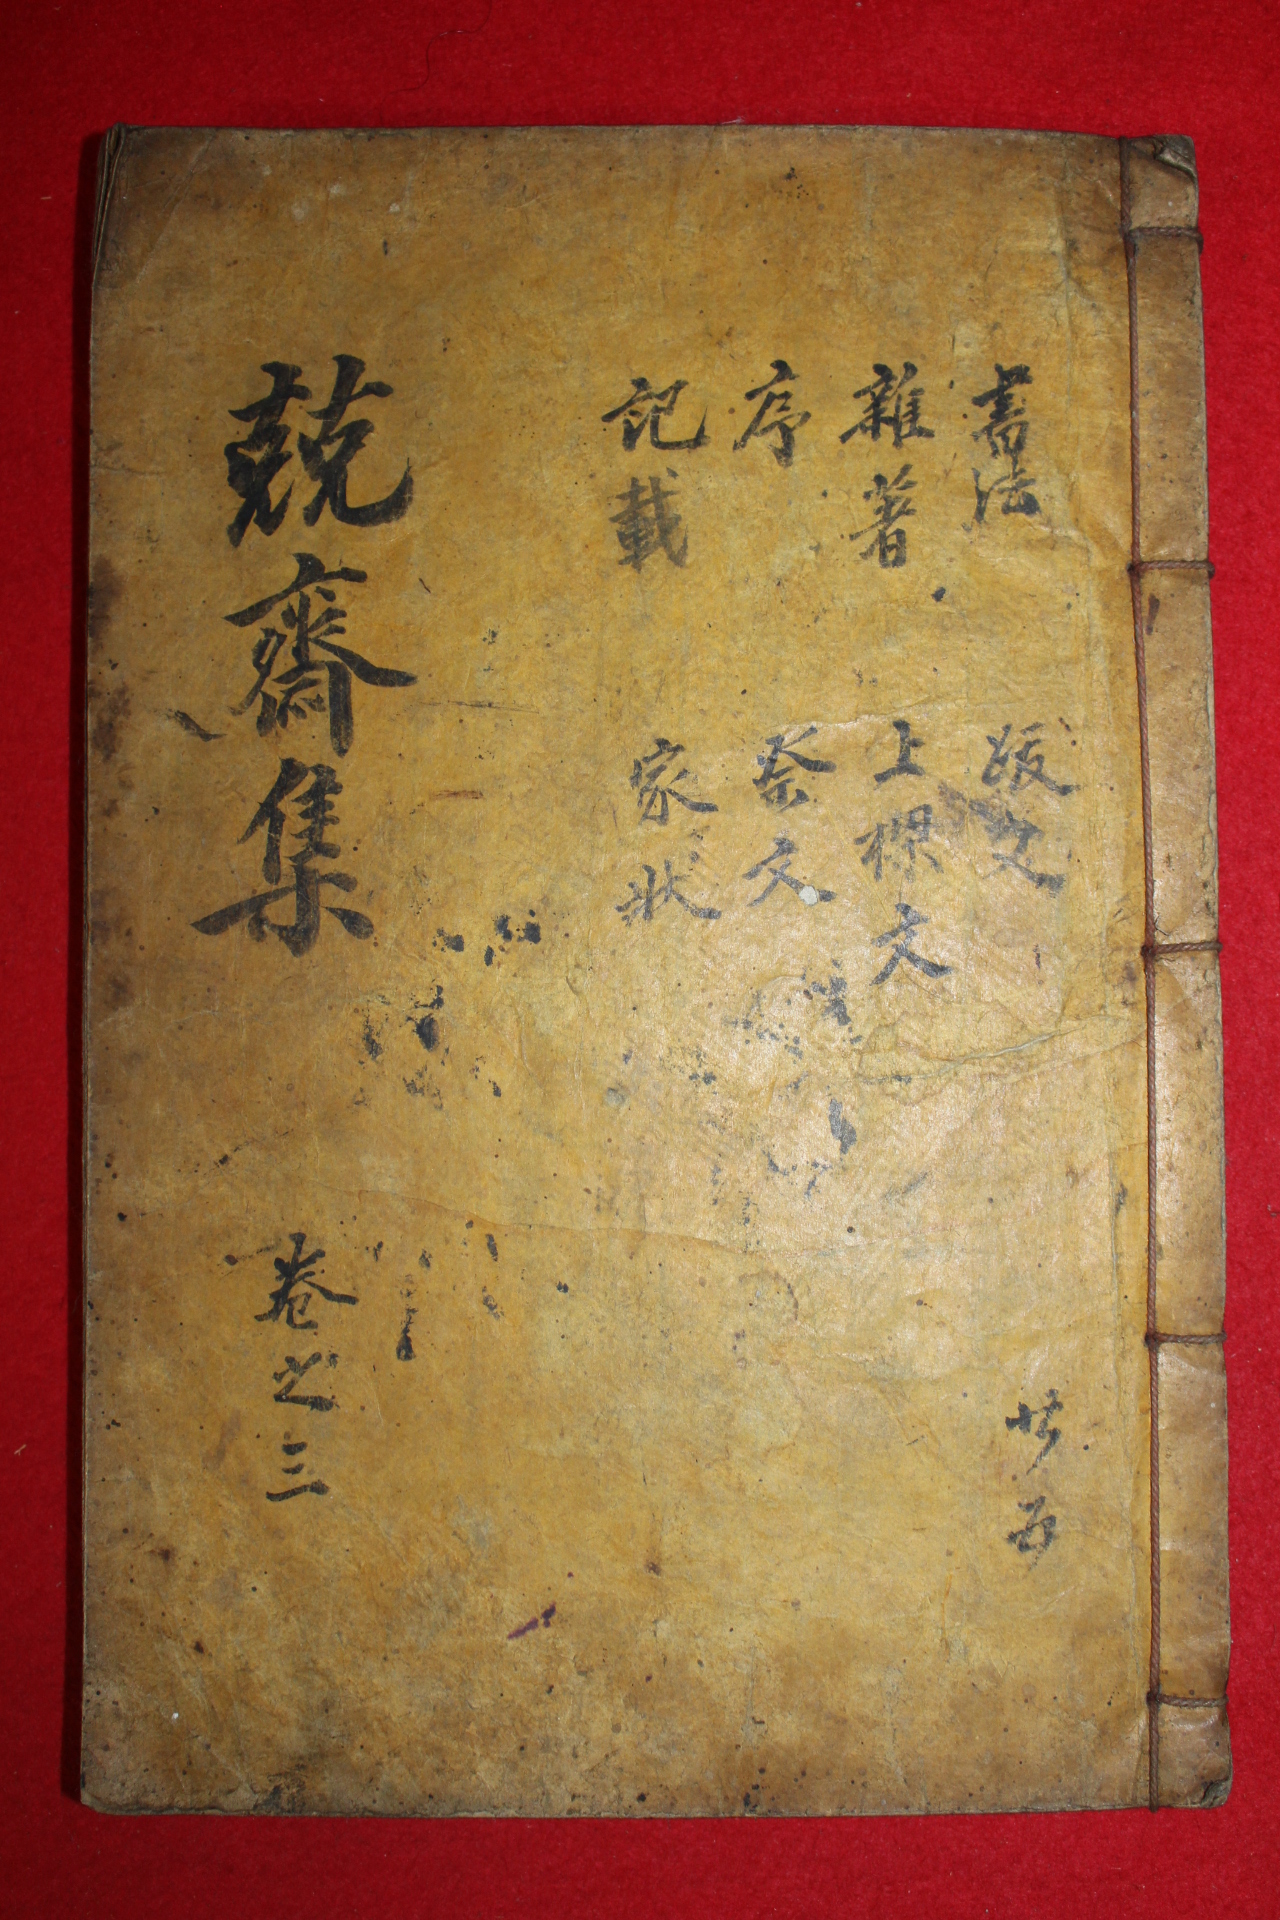 書法 跋文
雜著 上樑文
序 祭文
記載 家狀
兢齋集 卷之三